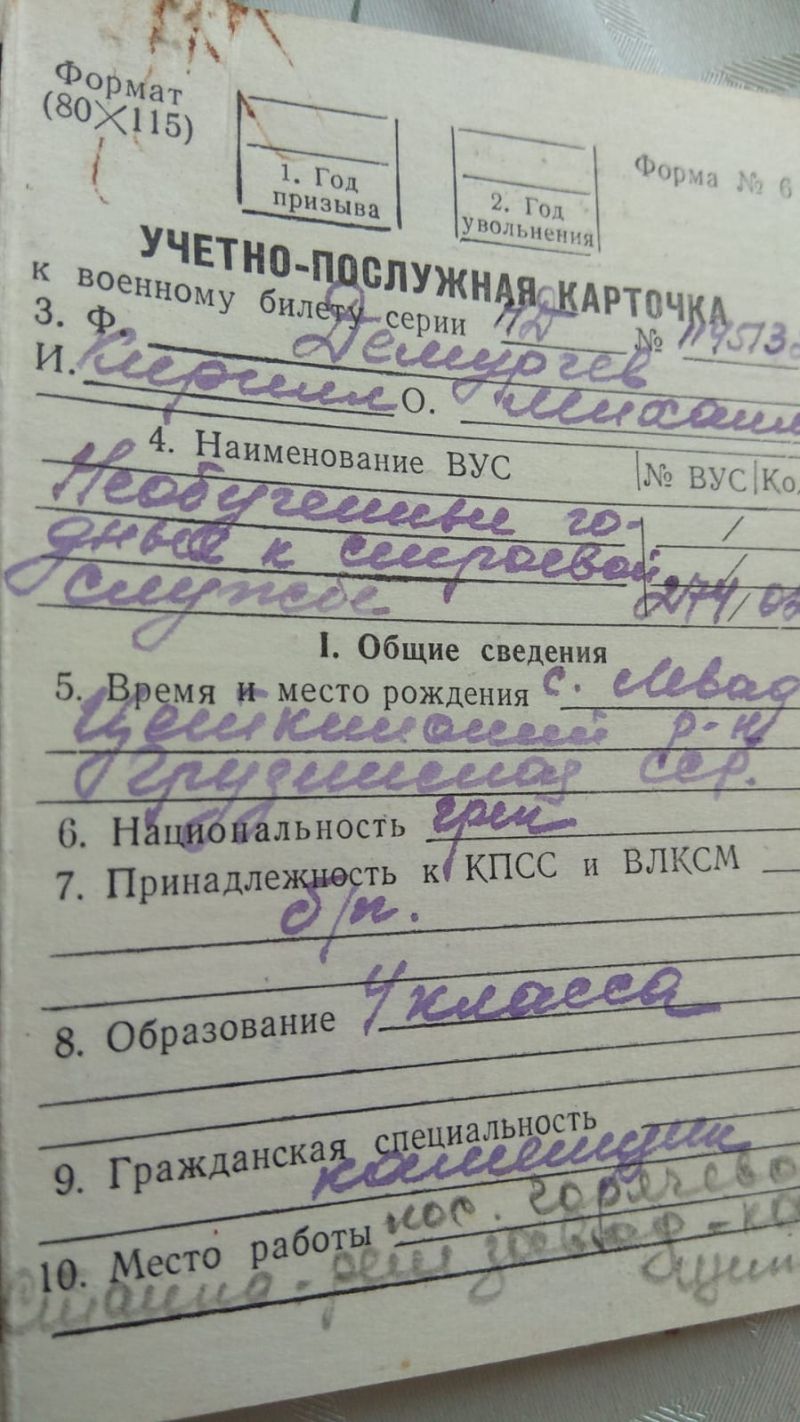 Формат
(80×115)
1. Год
призыва
2. Год
увольнения
Форма № 6
УЧЕТНО-ПОСЛУЖНАЯ КАРТОЧКА
к военному билету серии НД №
3. Ф. Демурчев
И. Кирилл О. Михаил
4. Наименование ВУС |№ ВУС|Ко
Необученные го- /
дные к строевой /
службе
I. Общие сведения
5. Время и место рождения с. Левад
Грузинская ССР.
6. Национальность грек
7. Принадлежность к КПСС и ВЛКСМ
б/п.
8. Образование 4 класса
9. Гражданская специальность
каменщик
10. Место работы пос. Горячево